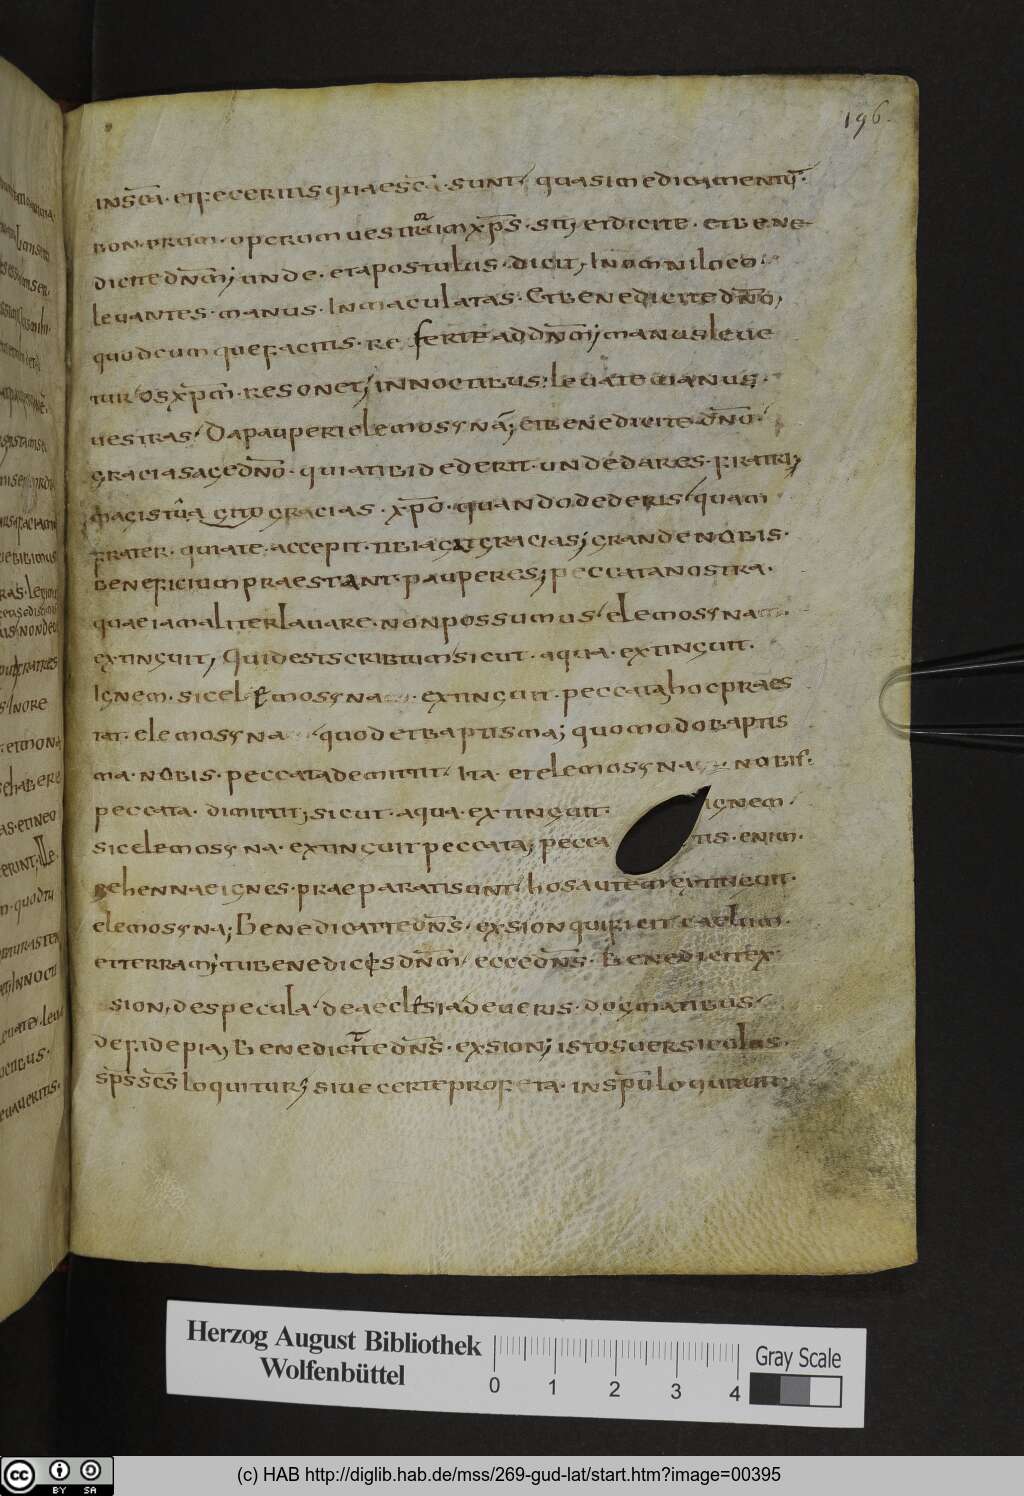 196.
inscā. et feceritis quae scā. sunt quasi medicamentū.
bonorum. operum uestrorum xp̄s. sit; et dicite. et bene
dicite dn̄m; unde. et apostulus. dicit, In omni loco.
leuantes. manus. Inmaculatas. Et benedicite dn̄o,
quodcumque facitis. referte ad dn̄m; manus leue
tur os xp̄m. resonet, in noctibus. leuate manus.
uestras. Da pauperi elemosynā; et benedicite dn̄o.
gracias age dn̄o. quia tibi dederit. unde dares. fratri;
gracias. xp̄o. quando dederis quam
frater. quia te. accepit. tibi agit gracias; grande nobis.
beneficium praestant pauperes; peccata nostra.
quae iam aliter lauare. non possumus elemosyna
extinguit, Quid est scribtum sicut. aqua. extinguit.
Ignem. sic elemosyna extinguit. peccata, hoc praes
tat. elemosyna quod et baptisma; quomodo baptis
ma. nobis. peccata demittit Ita. et elemosyna nobis.
peccata. dimittit, sicut. aqua. extinguit. ignem.
sic elemosyna. extinguit peccata, pecca tis. enim.
gehennae ignes. praeparati sunt hos autem extinguit.
elemosyna; Benedicat te dn̄s. ex sion qui ficit caelum.
et terram; tu benedices dn̄m ecce dn̄s. Benedicit ex
sion, de specula de aeclesia de ueris. dogmatibus
de fide pia, Benedicit te dn̄s. ex sion; istos uersiculos.
sp̄s sc̄s loquitur; siue certe profeta. in sp̄u loquitur
Herzog August Bibliothek
Wolfenbüttel
0 1 2 3 4
Gray Scale
cc BY SA
(c) HAB http://diglib.hab.de/mss/269-gud-lat/start.htm?image=00395